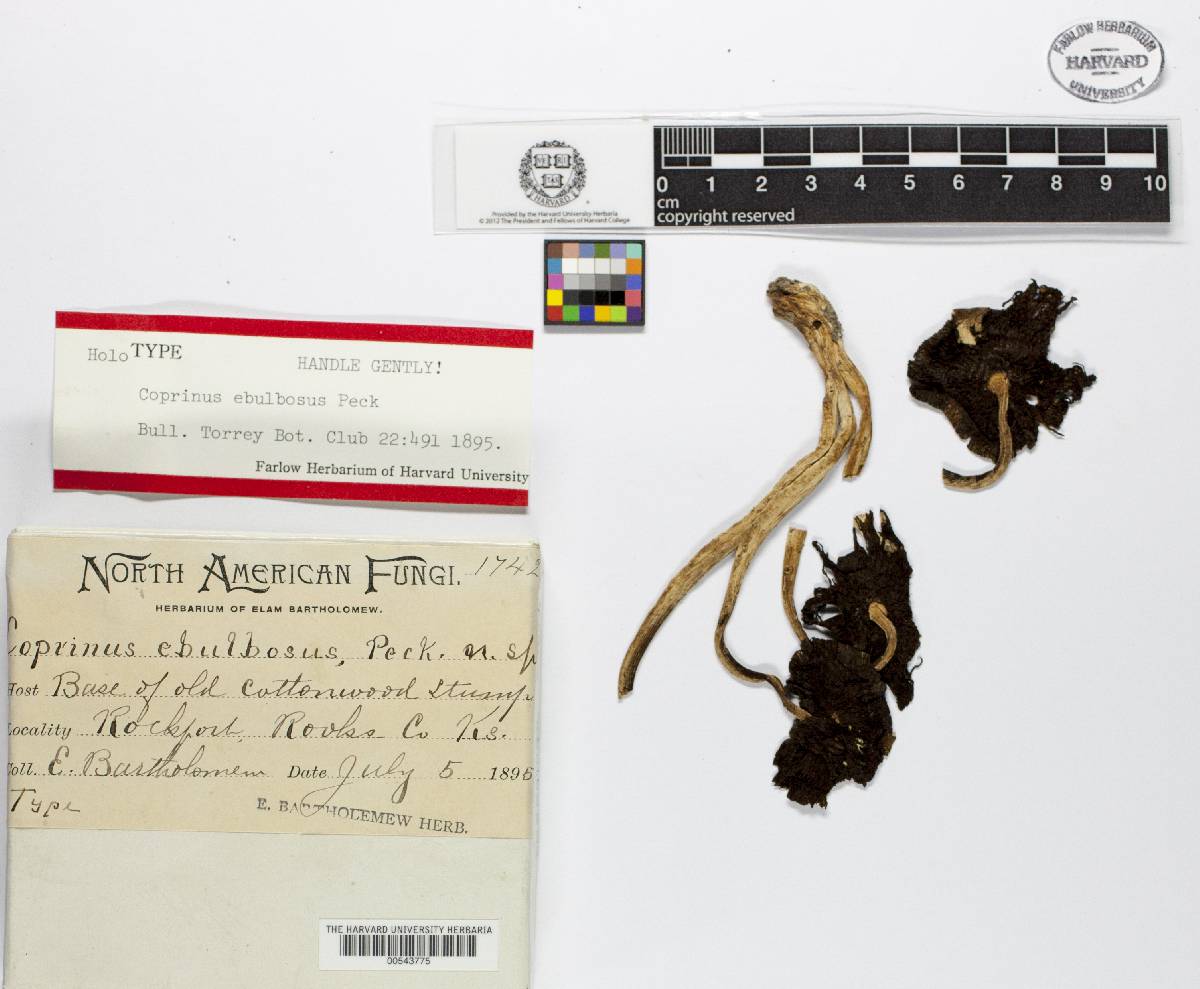 FARLOW HERBARIUM
HARVARD
UNIVERSITY
VE RI
TAS
HARVARD
Provided by the Harvard University Herbaria
© 2012 The President and Fellows of Harvard College
0 1 2 3 4 5 6 7 8 9 10
cm
copyright reserved
Holo TYPE HANDLE GENTLY!
Coprinus ebulbosus Peck
Bull. Torrey Bot. Club 22:491 1895.
Farlow Herbarium of Harvard University
NORTH AMERICAN FUNGI. 1742
HERBARIUM OF ELAM BARTHOLOMEW.
Coprinus ebulbosus, Peck. n. sp
Host Base of old cottonwood stump
Locality Rockport, Rooks Co Ks.
Coll. E. Bartholomew Date July 5 1895
Type
E. BARTHOLEMEW HERB.
THE HARVARD UNIVERSITY HERBARIA
00543775